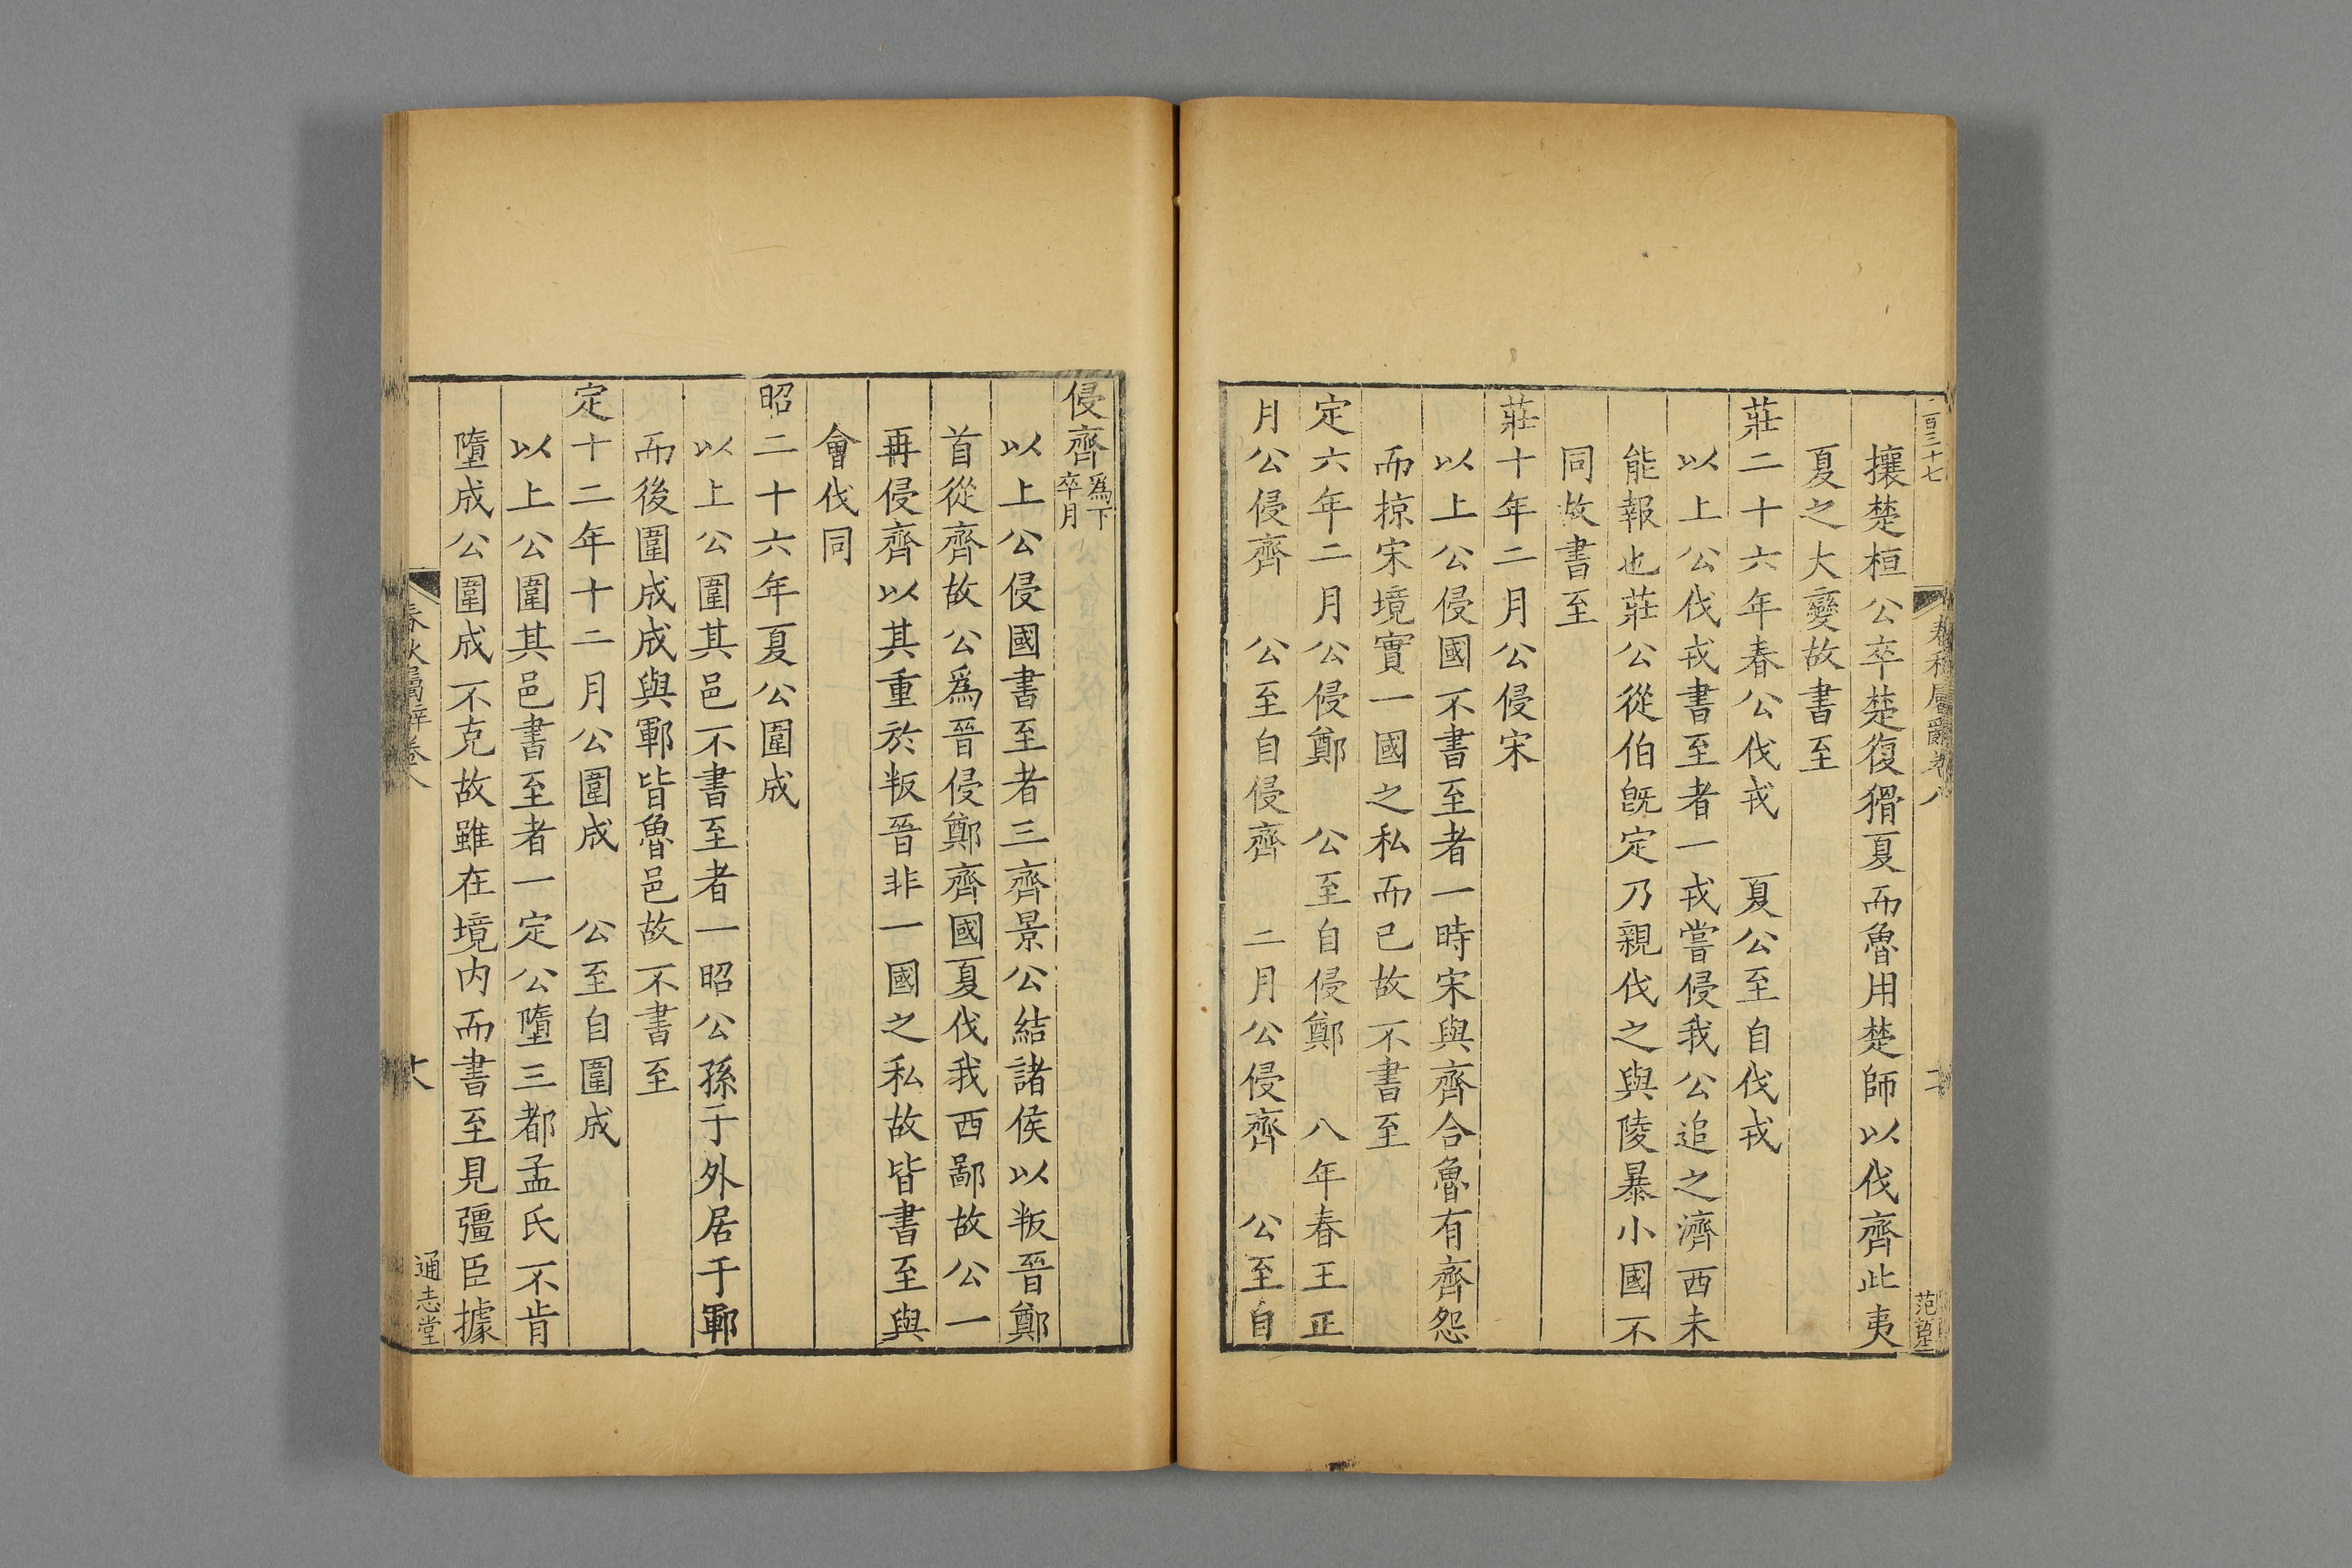 百三十七
春秋屬辭卷八
范
攘楚桓公卒楚復猾夏而魯用楚師以伐齊此夷
夏之大變故書至
莊二十六年春公伐戎　夏公至自伐戎
以上公伐戎書至者一戎嘗侵我公追之濟西未
能報也莊公從伯旣定乃親伐之與陵暴小國不
同故書至
莊十年二月公侵宋
以上公侵國不書至者一時宋與齊合魯有齊怨
而掠宋境實一國之私而已故不書至
定六年二月公侵鄭　公至自侵鄭　八年春王正
月公侵齊　公至自侵齊　二月公侵齊　公至自
侵齊爲下卒月
以上公侵國書至者三齊景公結諸侯以叛晉鄭
首從齊故公爲晉侵鄭齊國夏伐我西鄙故公一
再侵齊以其重於叛晉非一國之私故皆書至與
會伐同
昭二十六年夏公圍成
以上公圍其邑不書至者一昭公孫于外居于鄆
而後圍成成與鄆皆魯邑故不書至
定十二年十二月公圍成　公至自圍成
以上公圍其邑書至者一定公墮三都孟氏不肯
墮成公圍成不克故雖在境内而書至見彊臣據
春秋屬辭卷八
通志堂